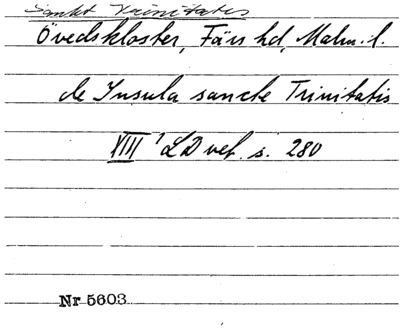 Sankt Trinitatis
Övedskloster, Färs hd, Malm. l.
de Insula sancte Trinitatis
XIII ¹ LD vef. s. 280
Nr 5603